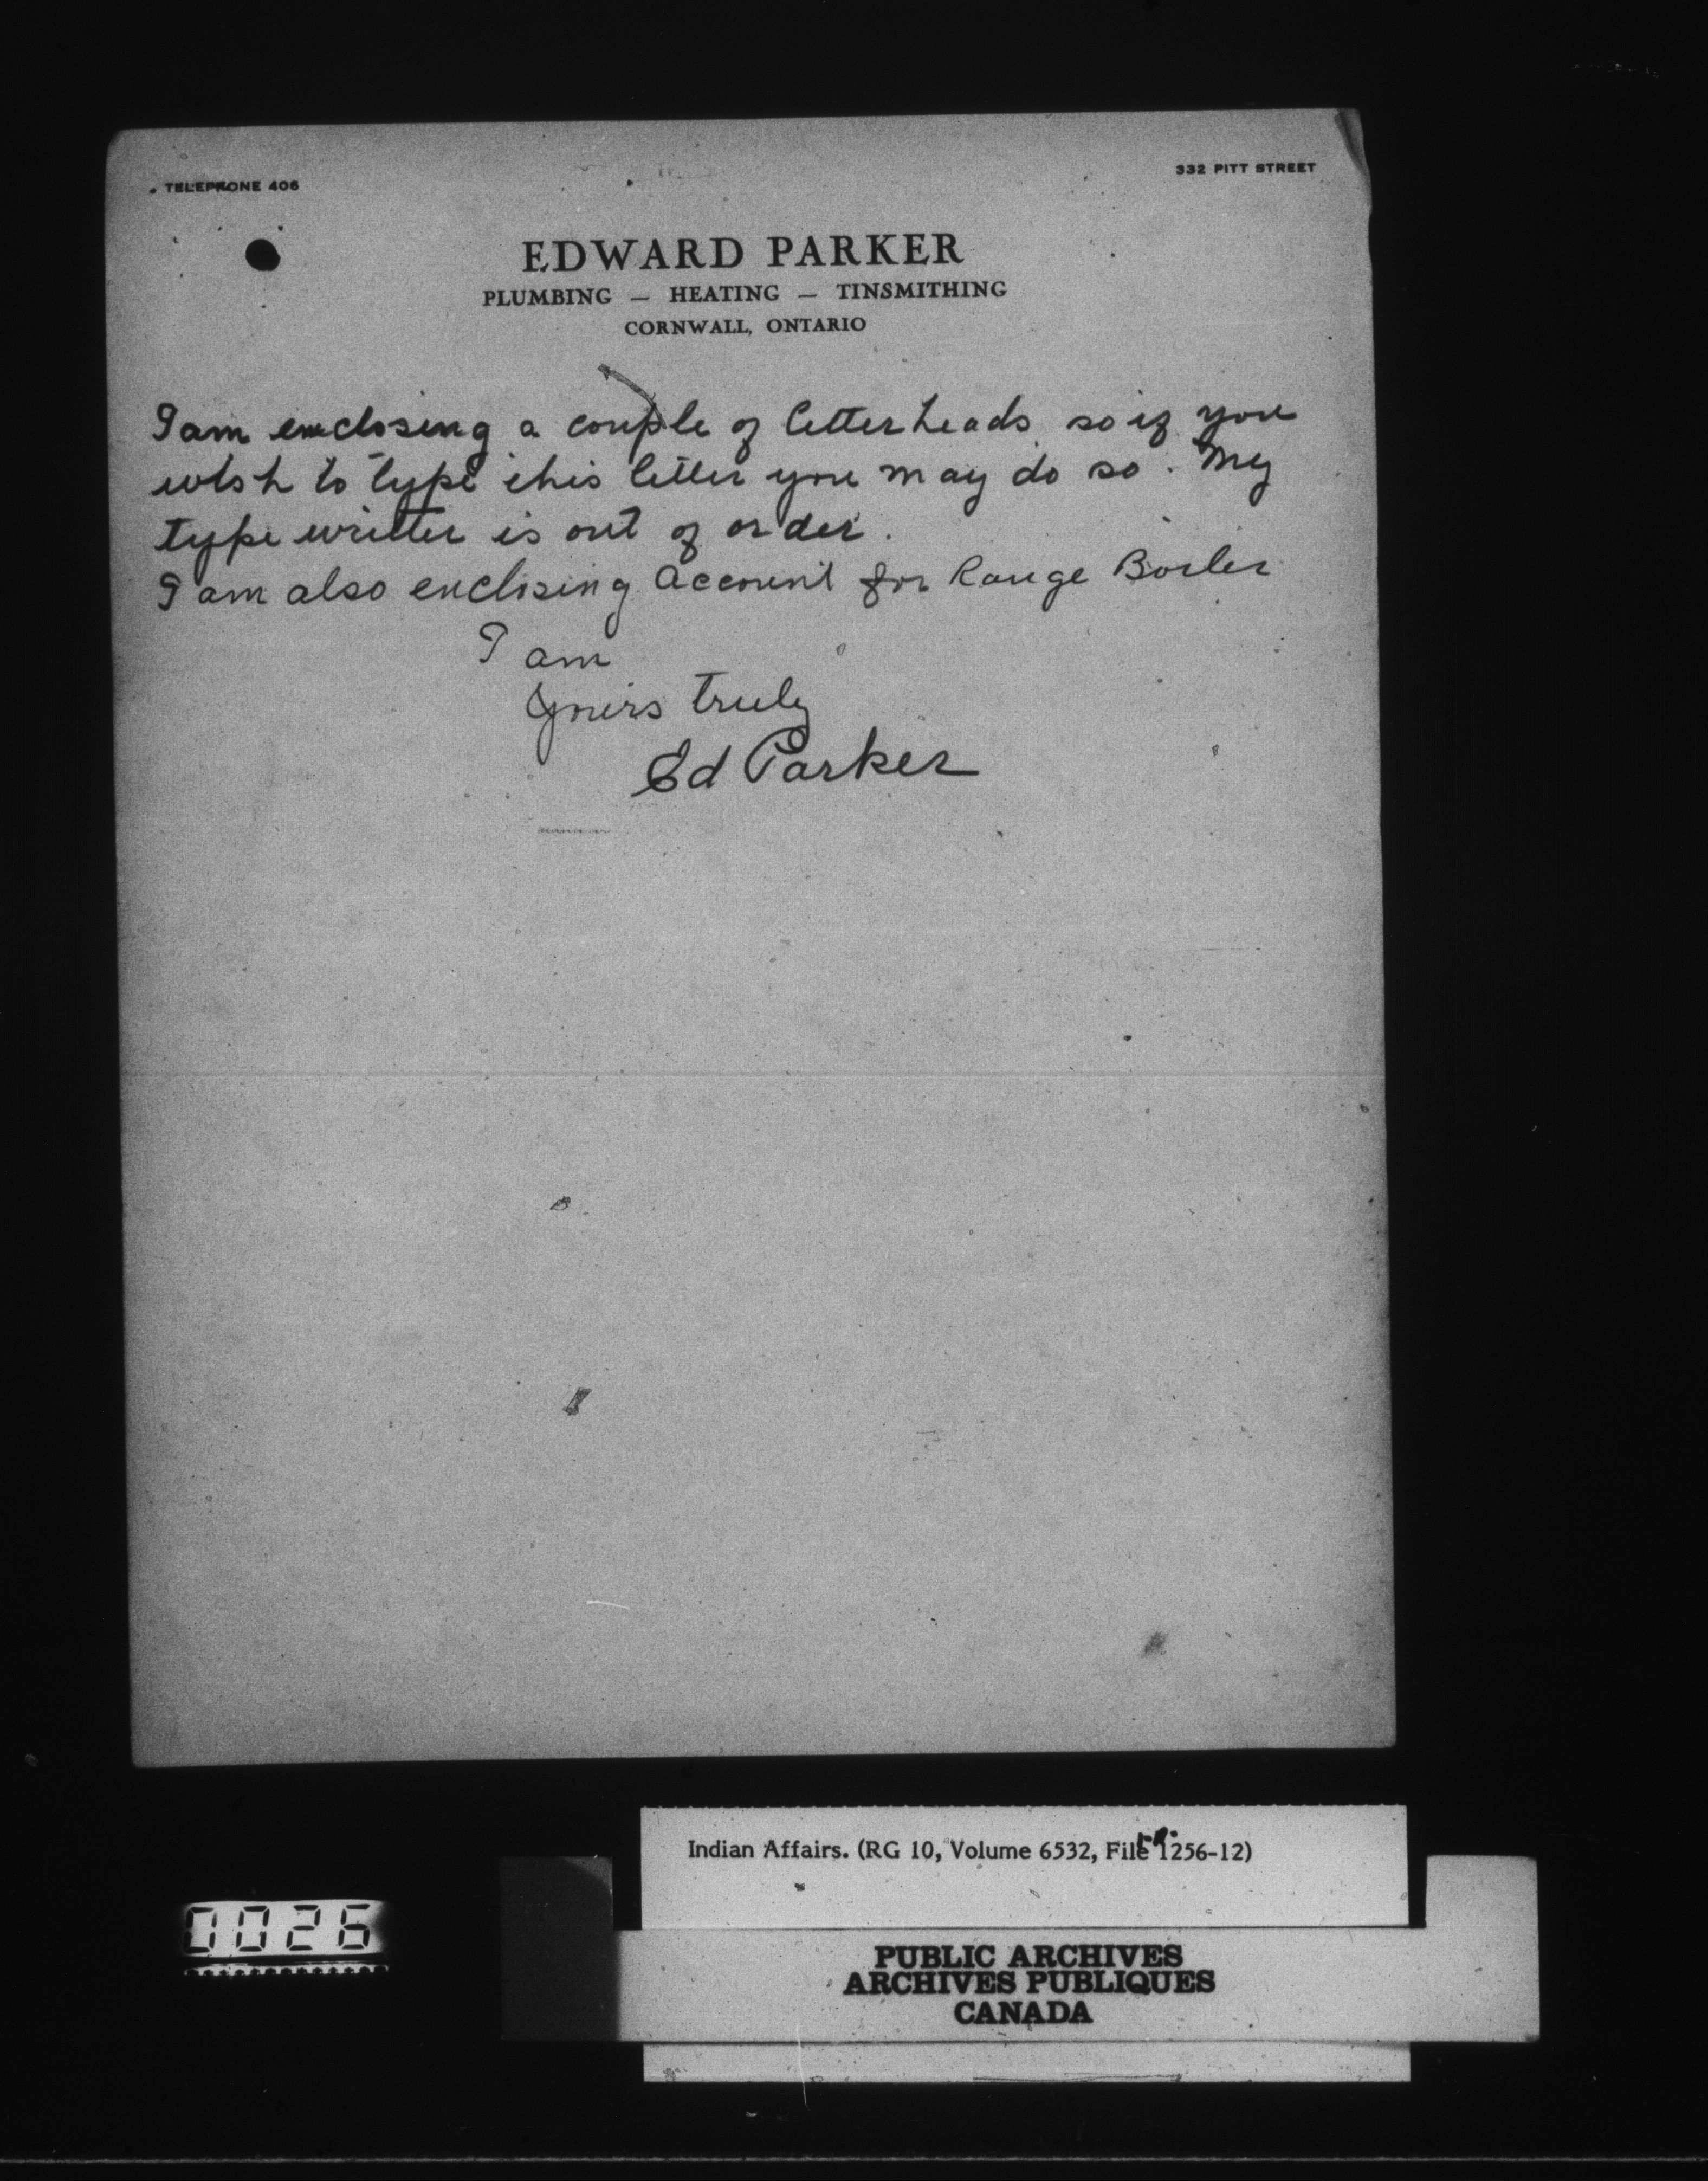 TELEPHONE 406
332 PITT STREET
EDWARD PARKER
PLUMBING — HEATING — TINSMITHING
CORNWALL, ONTARIO
I am enclosing a couple of letterheads so if you
wish to type this letter you may do so. My
type writter is out of order.
I am also enclosing Account for Range Boiler
I am
Yours truly
Ed Parker
Indian Affairs. (RG 10, Volume 6532, File 1256-12)
0026
PUBLIC ARCHIVES
ARCHIVES PUBLIQUES
CANADA